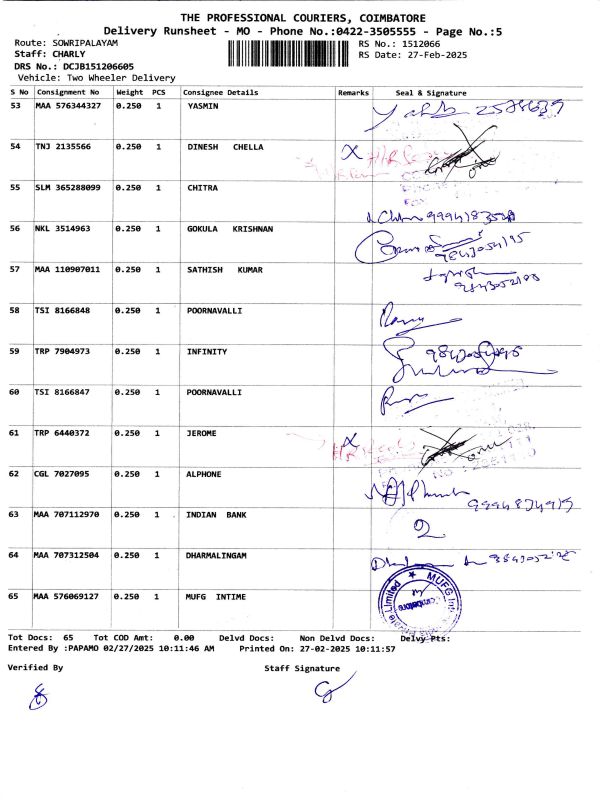 THE PROFESSIONAL COURIERS, COIMBATORE
Delivery Runsheet - MO - Phone No.:0422-3505555 - Page No.:5
Route: SOWRIPALAYAM RS No.: 1512066
Staff: CHARLY RS Date: 27-Feb-2025
DRS No.: DCJB151206605
Vehicle: Two Wheeler Delivery
S No Consignment No Weight PCS Consignee Details Remarks Seal & Signature
53 MAA 576344327 0.250 1 YASMIN
54 TNJ 2135566 0.250 1 DINESH CHELLA X
55 SLM 365288099 0.250 1 CHITRA
56 NKL 3514963 0.250 1 GOKULA KRISHNAN
57 MAA 110907011 0.250 1 SATHISH KUMAR
58 TSI 8166848 0.250 1 POORNAVALLI
59 TRP 7904973 0.250 1 INFINITY
60 TSI 8166847 0.250 1 POORNAVALLI
61 TRP 6440372 0.250 1 JEROME X
62 CGL 7027095 0.250 1 ALPHONE
63 MAA 707112970 0.250 1 INDIAN BANK
64 MAA 707312504 0.250 1 DHARMALINGAM
65 MAA 576069127 0.250 1 MUFG INTIME
Tot Docs: 65 Tot COD Amt: 0.00 Delvd Docs: Non Delvd Docs: Delvy Pts:
Entered By :PAPAMO 02/27/2025 10:11:46 AM Printed On: 27-02-2025 10:11:57
Verified By Staff Signature